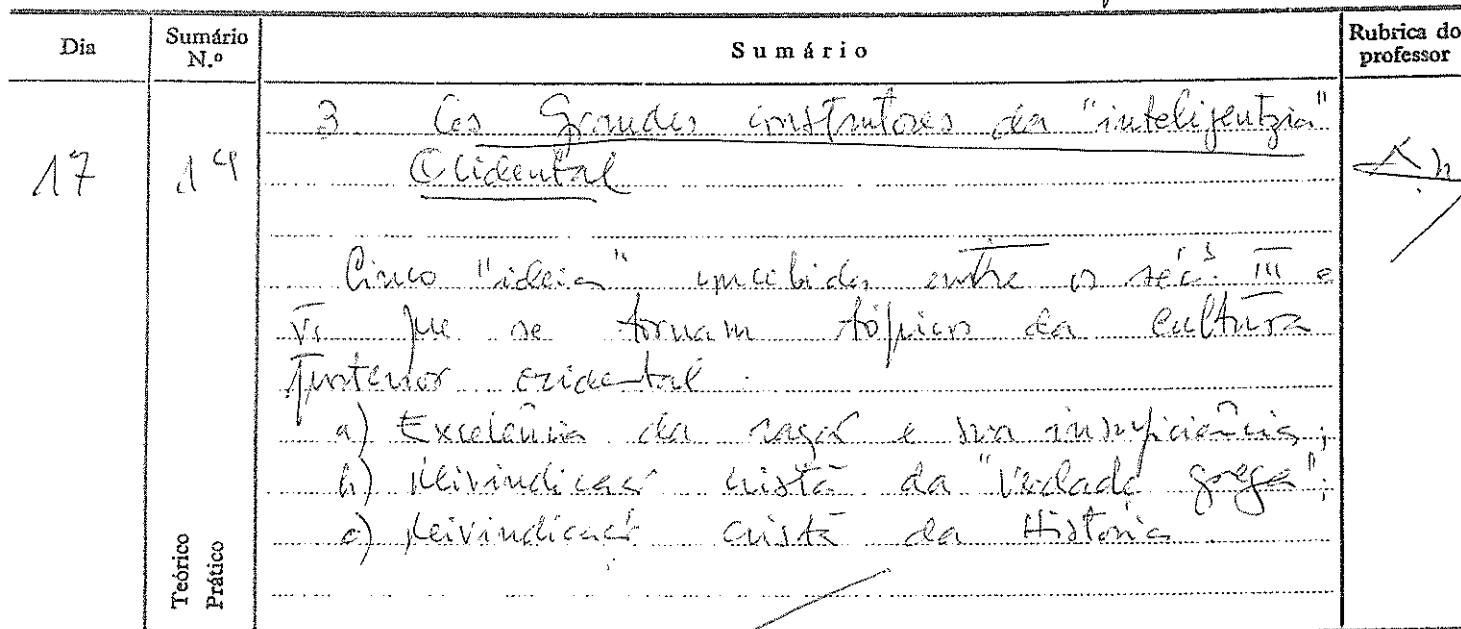 Dia
Sumário N.º
Sumário
Rubrica do professor
3. Os Grandes construtores da "inteligentzia"
17
14
Ocidental
Cinco "ideias" concebidas entre os séc.s III e
VI que se tornam tópicos da cultura
posterior ocidental.
a) Excelência da razão e sua insuficiência;
b) Reivindicação cristã da "verdade grega";
c) Reivindicação cristã da História.
Teórico
Prático